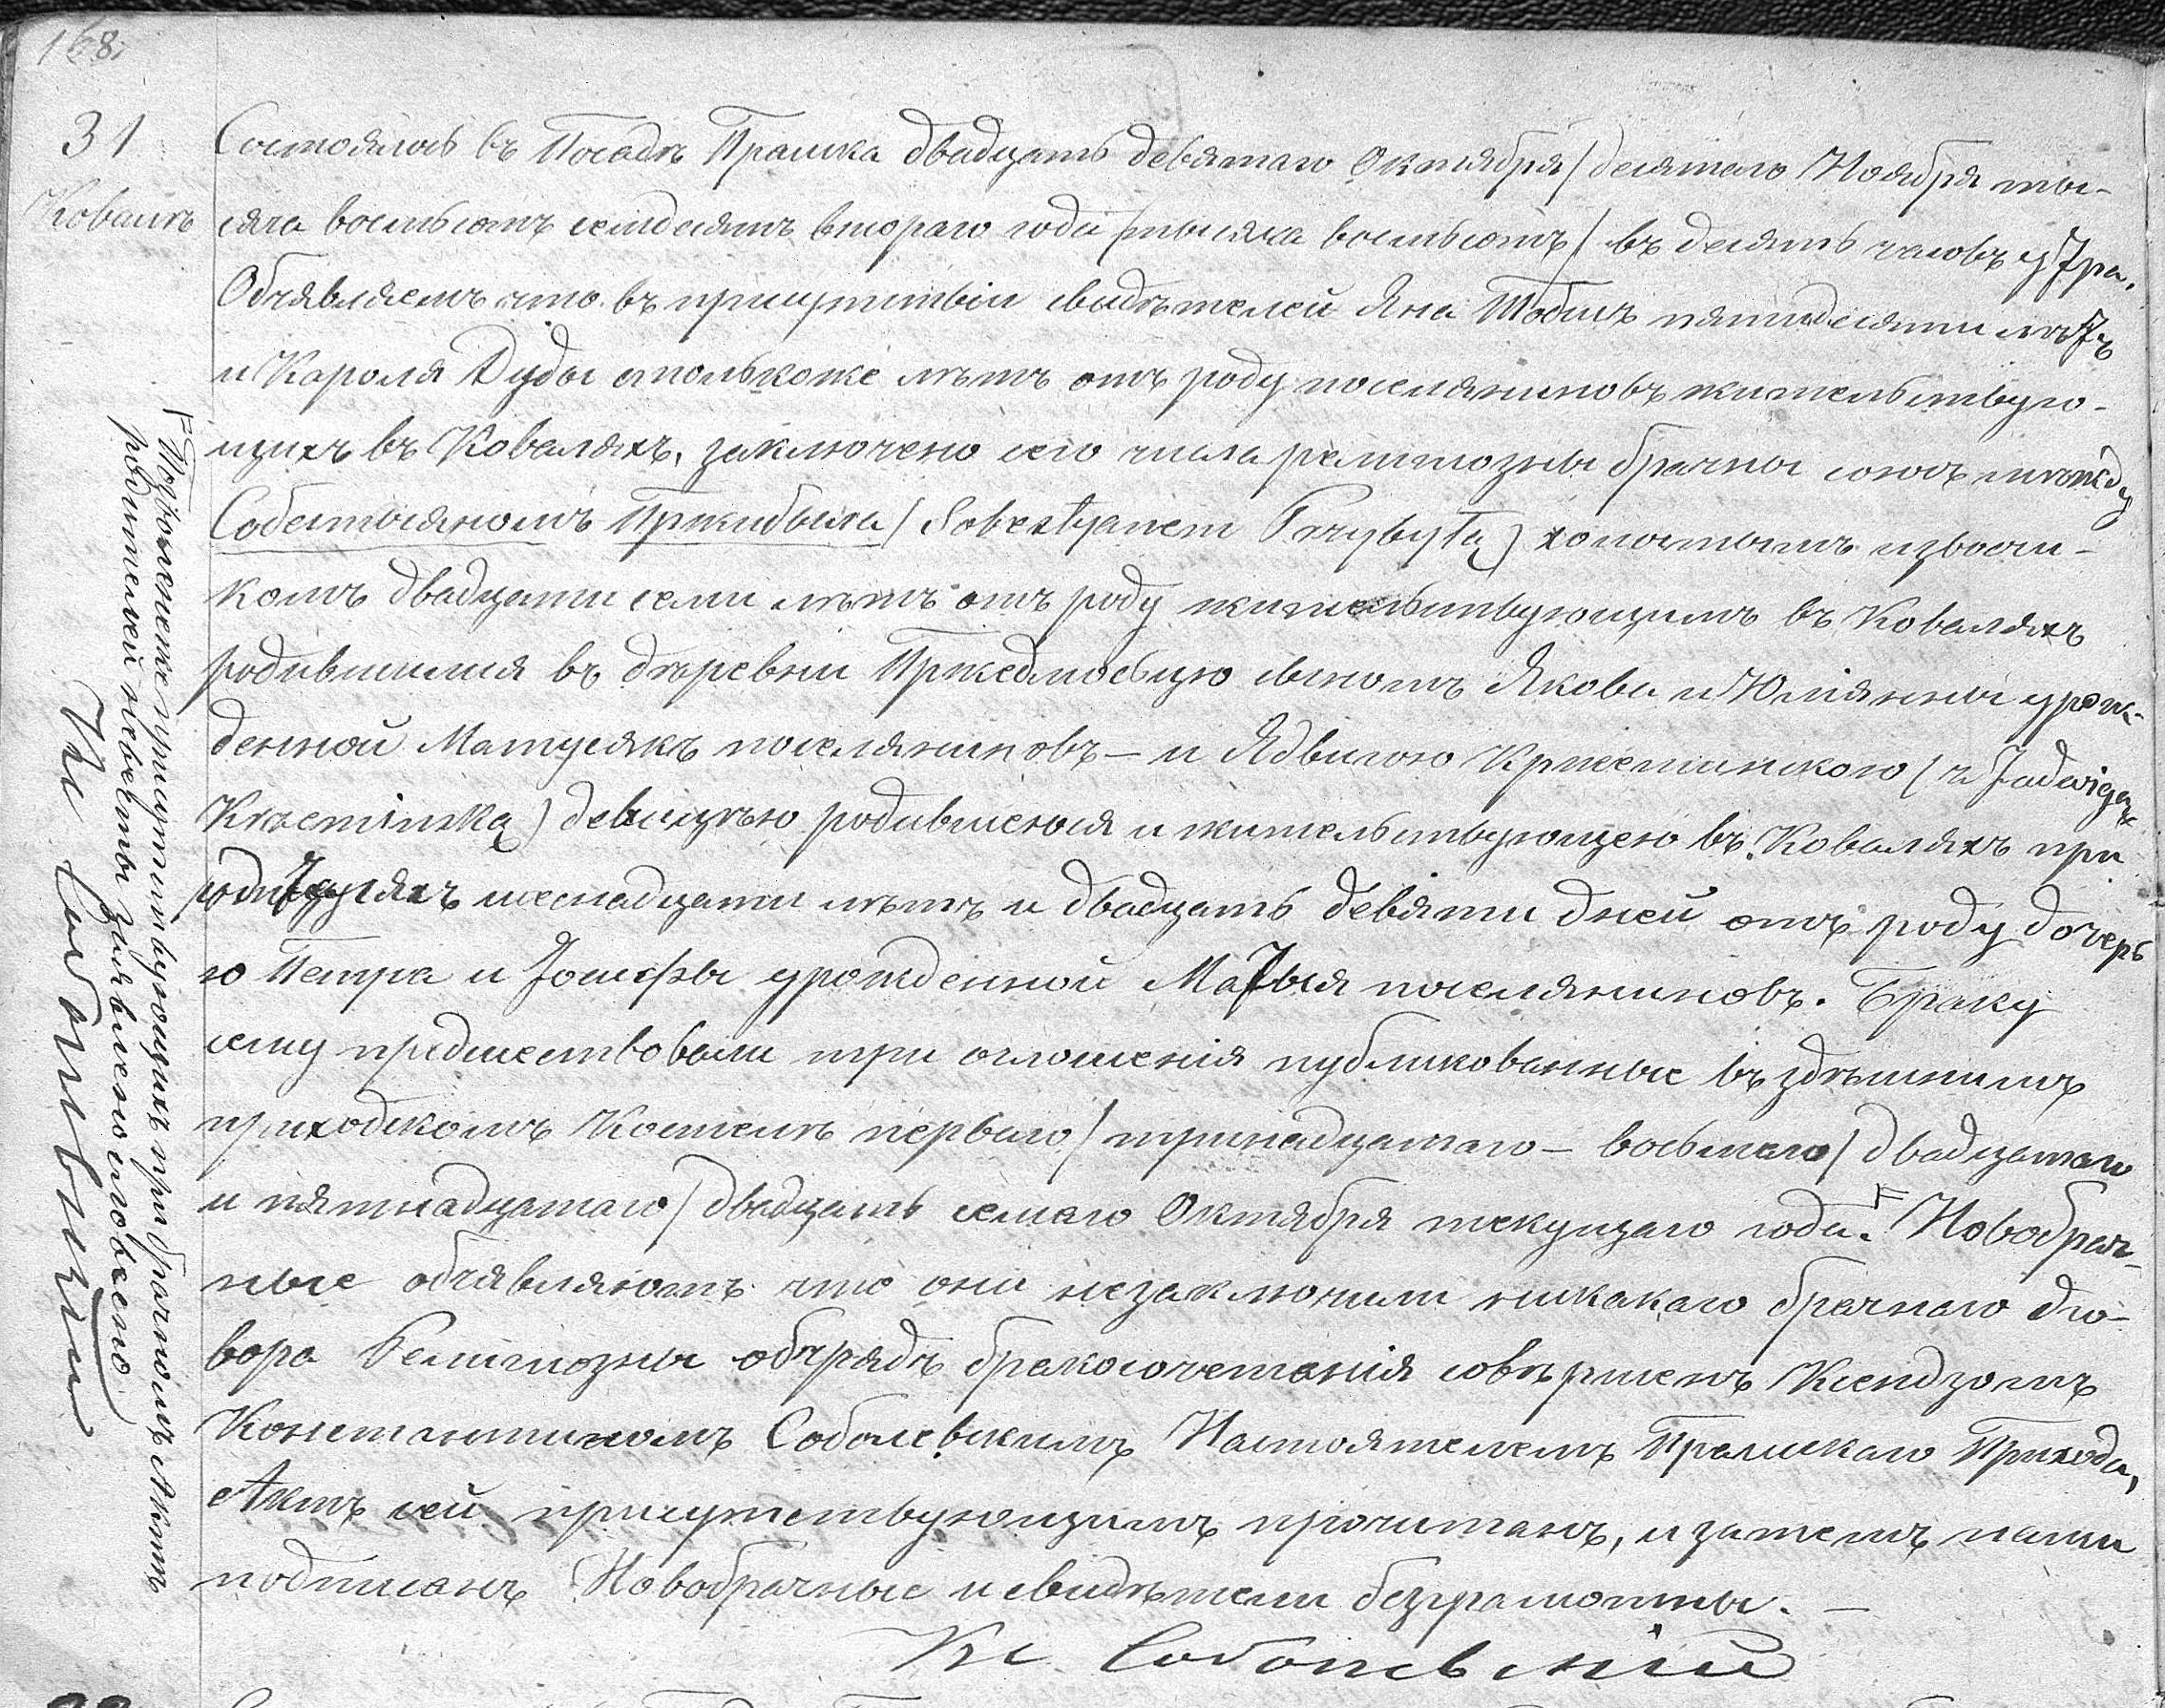 168.
31
Ковалѣ
Состоялось въ Посадѣ Прашка двадцать девятаго Октября/десятаго Ноября ты-
сяча восмьсотъ семдесятъ втораго года /тысяча восмьсотъ/ въ десять часовъ утра.
Объявляемъ что въ присутствіи свидѣтелей Яна Тобисъ пятидесяти лѣтъ
и Кароля Дуды столькоже лѣтъ отъ роду поселяниновъ жительствую-
щихъ въ Коваляхъ, заключено сего числа религіозны брачны союзъ между
Собестыяномъ Пржибыла (Sobestyanem Przybyłą) холостымъ извощи-
комъ двадцати семи лѣтъ отъ роду жительствующимъ въ Коваляхъ
родившимся въ дѣревни Пржедмосьцю сыномъ Якова и Юліянны урож-
денной Матусякъ поселяниновъ — и Ядвигою Кржеминскою (z Jadwigą
Krzeminską) девицъю родившеюся и жительствующею въ Коваляхъ при
родителяхъ шеснадцати лѣтъ и двадцать девяти дней отъ роду дочерь
ю Петра и Іозефы урожденной Матыя поселяниновъ. Браку
сему предшествовали три оглошенія публикованные въ здѣшнимъ
приходскомъ Костелѣ перваго/тринадцатаго — восьмаго/двадцатаго
и пятнадцатаго/двадцать семаго Октября текущаго года. Новобрач-
ные объявляютъ что они незаключили никакаго брачнаго дого-
вора Религіозны обърядъ бракосочетанія совѣршенъ Ксендзомъ
Константиномъ Соболевскимъ Настоятелемъ Прашскаго Прихода,
Актъ сей присуствующимъ прочитанъ, и затемъ нами
подписанъ Новобрачные и свидѣтели безграмотны. —
Кс. Соболевскій
Позволеніе присутствующихъ при брачномъ Актѣ
родителей невѣсты заявлено словесно
Кс Соболевскій